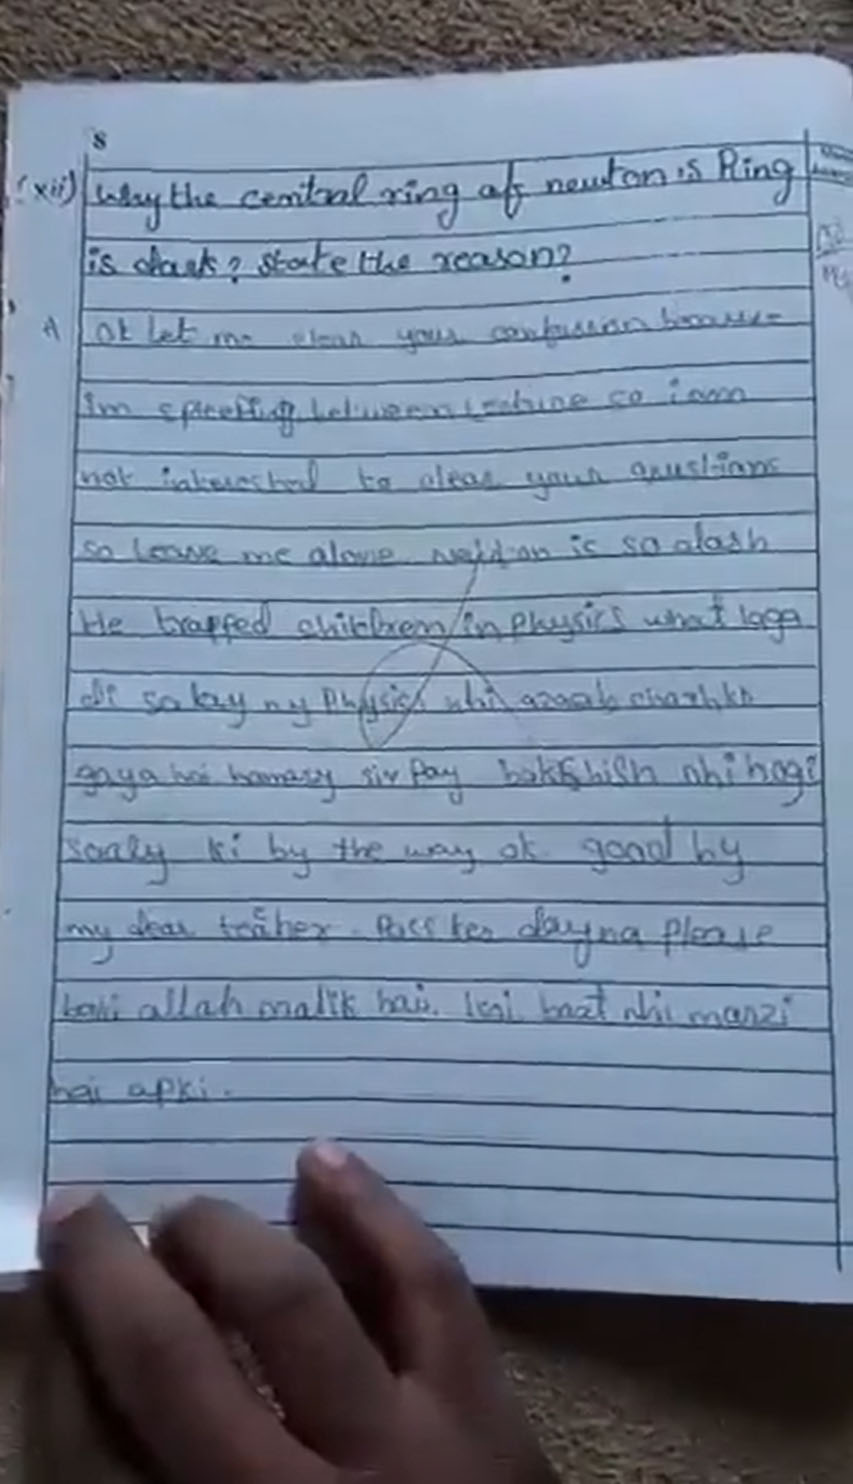 8
(xii) Why the central ring of newton's Ring
is dark? State the reason?
A ok Let me clear your confusion because
im spleeping between Lecture so i am
not interested to clear your questions
so leave me alone newton is so
He trapped children in Physics what laga
di salay ny Physics nhi azaab charh kr
gaya hai hamary sir Pay bakhshish nhi hogi
saaly ki by the way ok good by
my dear teaher. Pass ker dayna Please
baki allah malik hai. koi baat nhi marzi
hai apki.